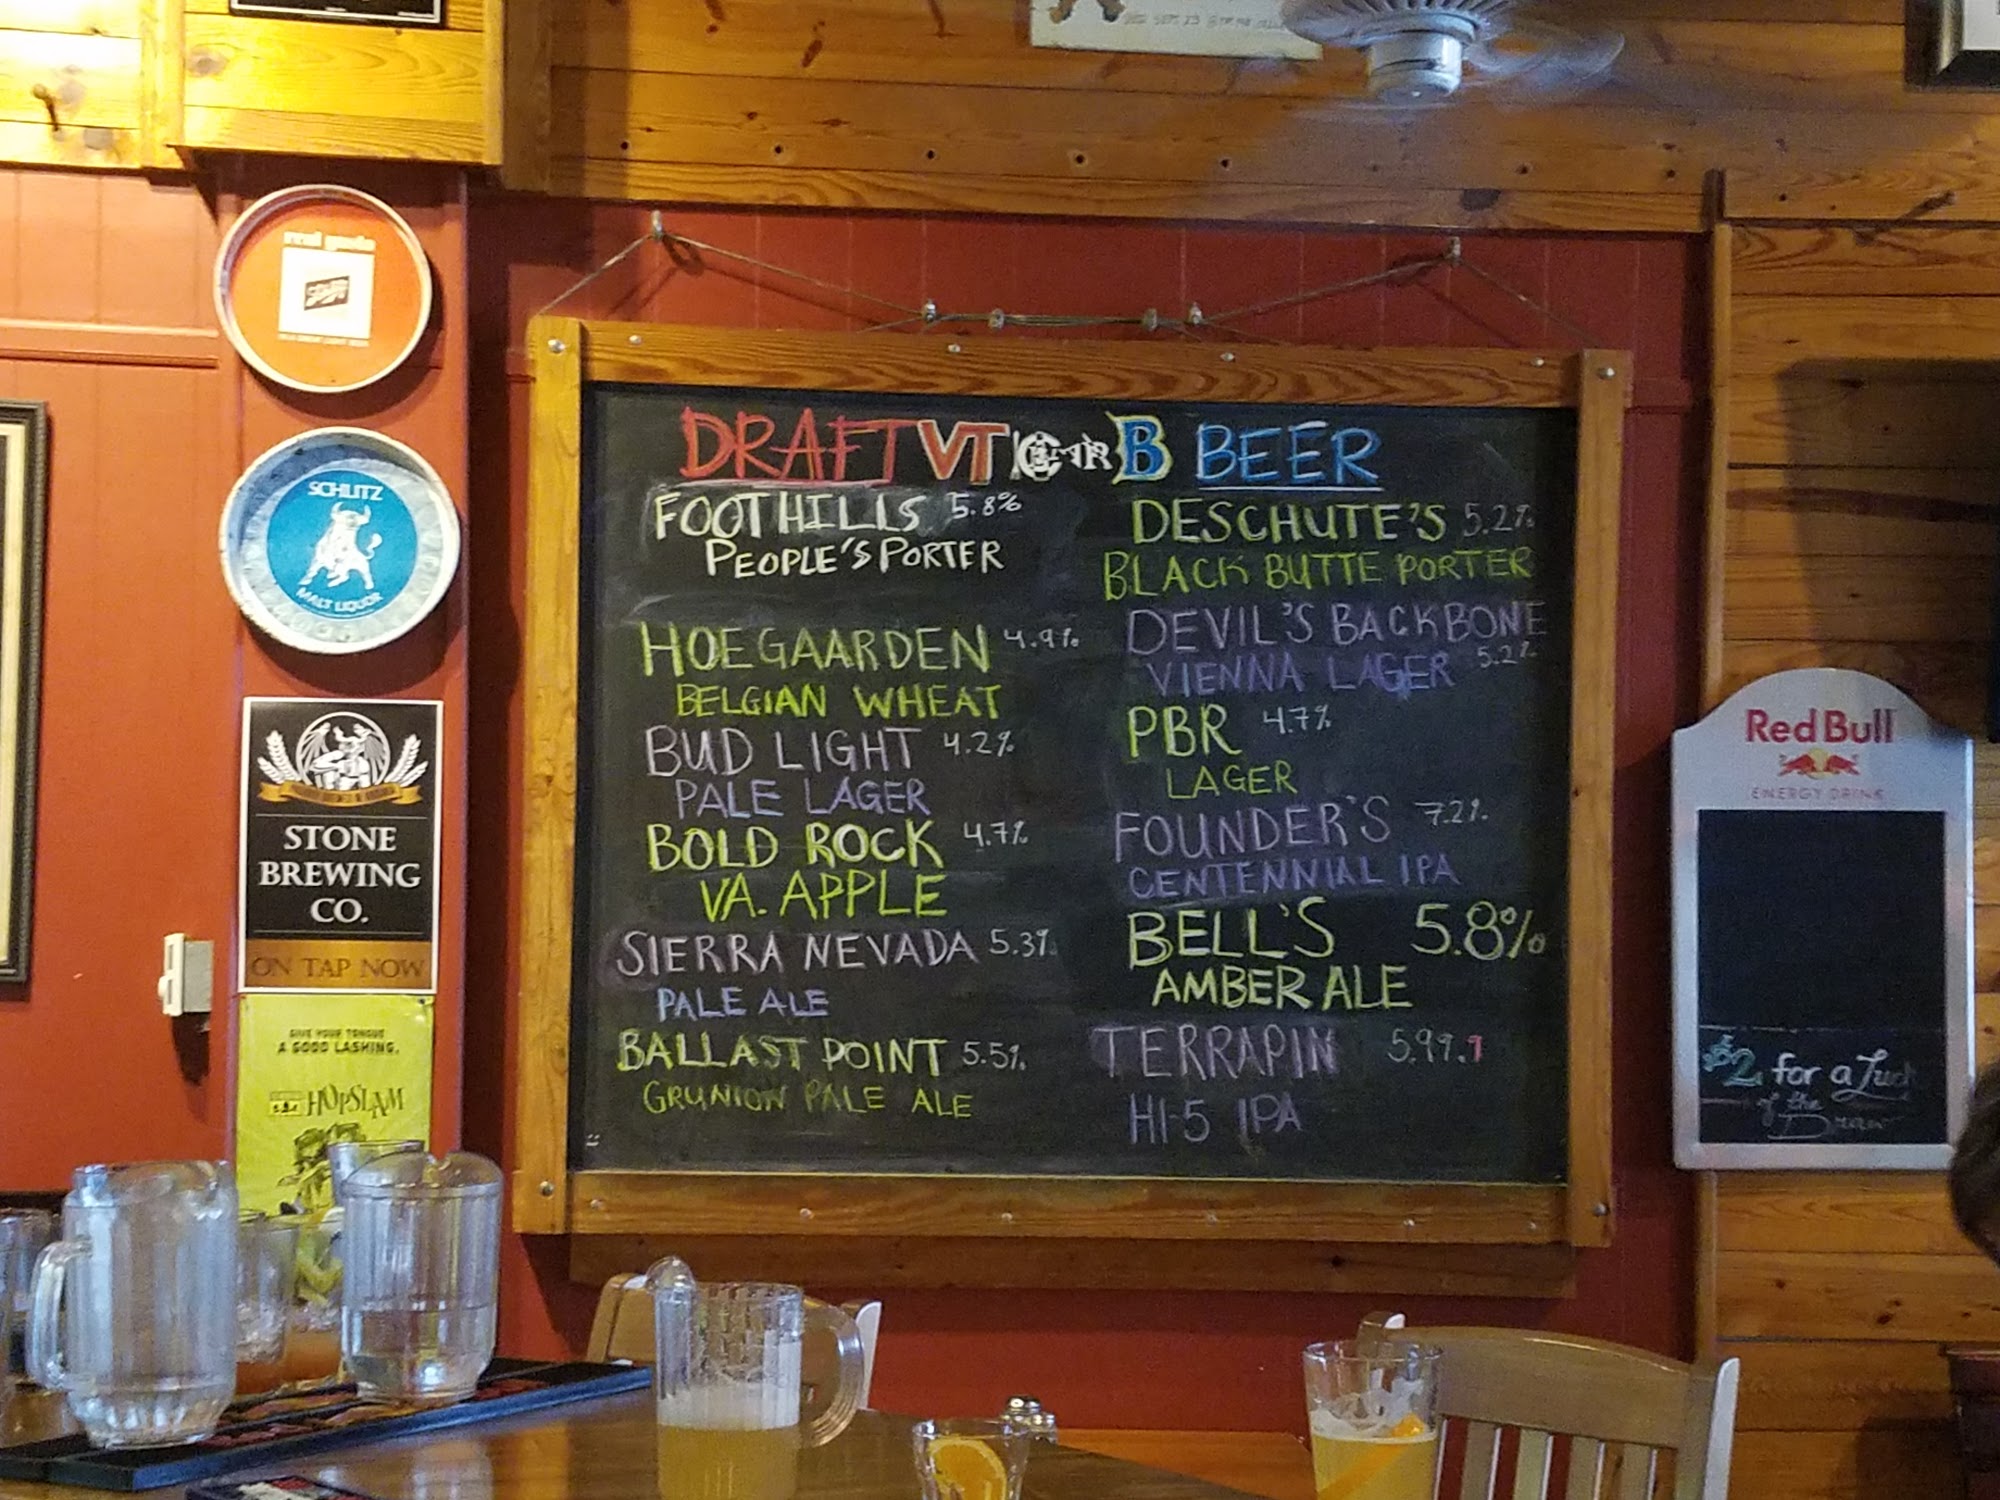 SCHLITZ
MALT LIQUOR
STONE
BREWING
CO.
ON TAP NOW
GIVE YOUR TONGUE
A GOOD LASHING.
HOPSLAM
DRAFT VT B BEER
FOOTHILLS 5.8%
PEOPLE'S PORTER
HOEGAARDEN 4.9%
BELGIAN WHEAT
BUD LIGHT 4.2%
PALE LAGER
BOLD ROCK 4.7%
VA. APPLE
SIERRA NEVADA 5.3%
PALE ALE
BALLAST POINT 5.5%
GRUNION PALE ALE
DESCHUTE'S 5.2%
BLACK BUTTE PORTER
DEVIL'S BACKBONE
VIENNA LAGER 5.2%
PBR 4.7%
LAGER
FOUNDER'S 7.2%
CENTENNIAL IPA
BELL'S 5.8%
AMBER ALE
TERRAPIN 5.99.9
HI-5 IPA
Red Bull
ENERGY DRINK
$2 for a Luck
of the